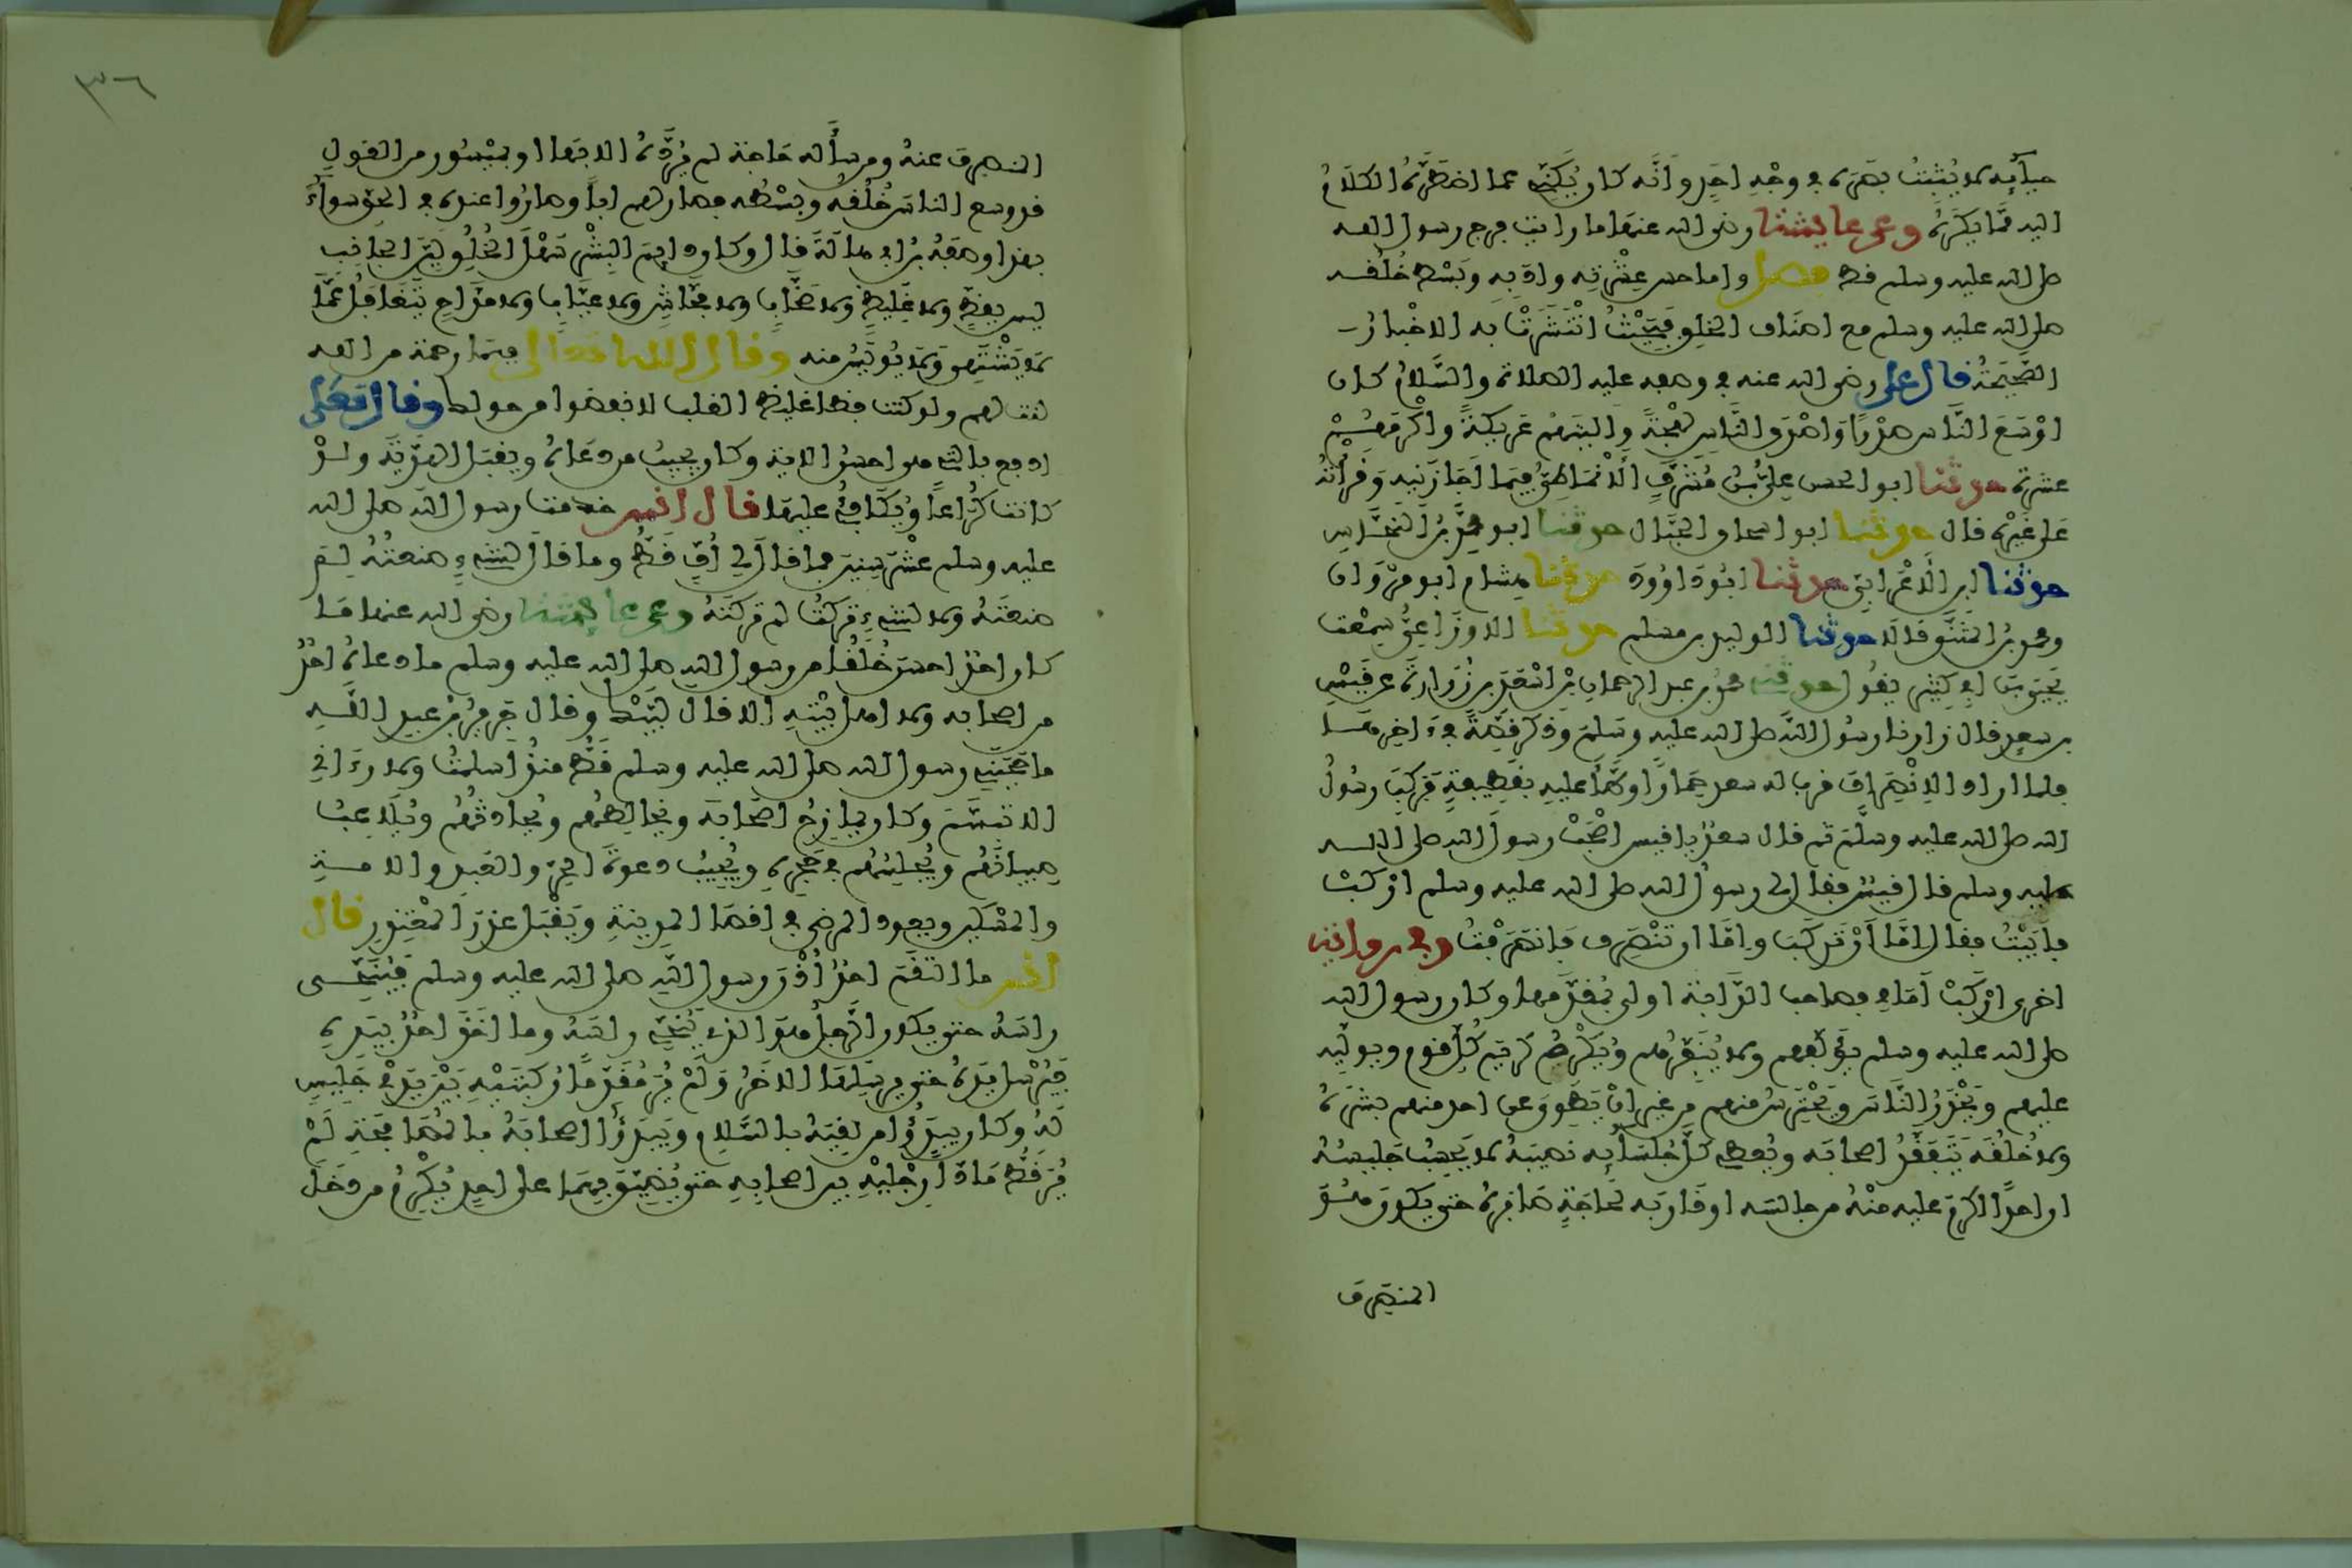 حيائه لا يثبت بصره في وجه احد وانه كان يكنى عما اضطره الكلام
اليه مما يكره وعن عايشة رضي الله عنها ما رايت فرج رسول الله
صلى الله عليه وسلم قط فصل واما حسن عشرته وادبه وبسط خلقه
صلى الله عليه وسلم مع اصناف الخلق فبحيث انتشرت به الاخبار
الصحيحة قال علي رضي الله عنه في وصفه عليه الصلاة والسلام كان
اوسع الناس صدرا واصدق الناس لهجة والينهم عريكة واكرمهم
عشرة حدثنا ابو الحسن علي بن مشرف الانماطي فيما اجازنيه وقراته
على غيره قال حدثنا ابو اسحاق الحبال حدثنا ابو محمد بن النحاس
حدثنا ابن الاعرابي حدثنا ابو داوود حدثنا هشام ابو مروان
ومحمد بن المثنى قالا حدثنا الوليد بن مسلم حدثنا الاوزاعي سمعت
يحيى بن ابي كثير يقول حدثني محمد بن عبد الرحمان بن اسعد بن زرارة عن قيس
بن سعد قال زارنا رسول الله صلى الله عليه وسلم وذكر قصة في اخرها
فلما اراد الانصراف قرب له سعد حمارا وطأ عليه بقطيفة فركب رسول
الله صلى الله عليه وسلم ثم قال سعد يا قيس اصحب رسول الله صلى الله
عليه وسلم قال قيس فقال لي رسول الله صلى الله عليه وسلم اركب
فابيت فقال اما ان تركب واما ان تنصرف فانصرفت وفي رواية
اخرى اركب امامي فصاحب الدابة اولى بمقدمها وكان رسول الله
صلى الله عليه وسلم يؤلفهم ولا ينفرهم ويكرم كريم كل قوم ويوليه
عليهم ويحذر الناس ويحترس منهم من غير ان يطوي عن احد منهم بشره
ولا خلقه يتفقد اصحابه ويعطي كل جلسائه نصيبه لا يحسب جليسه
ان احدا اكرم عليه منه من جالسه او قاربه لحاجة صابره حتى يكون هو
المنصرف
٣٦
المنصرف عنه ومن سأله حاجة لم يرده الا بها او بميسور من القول
قد وسع الناس خلقه وبسطه فصار لهم ابا وصاروا عنده في الحق سواء
بهذا وصفه بن ابي هالة قال وكان دايم البشر سهل الخلق لين الجانب
ليس بفظ ولا غليظ ولا صخاب ولا فحاش ولا عياب ولا مزاح يتغافل عما
لا يشتهي ولا يويس منه وقال الله تعالى فبما رحمة من الله
لنت لهم ولو كنت فظا غليظ القلب لانفضوا من حولك وقال تعلى
ادفع بالتي هي احسن الاية وكان يجيب من دعاه ويقبل الهدية ولو
كانت كراعا ويكافئ عليها قال انس خدمت رسول الله صلى الله
عليه وسلم عشر سنين فما قال لي اف قط وما قال لشيء صنعته لم
صنعته ولا لشيء تركته لم تركته وعن عايشة رضي الله عنها ما
كان احد احسن خلقا من رسول الله صلى الله عليه وسلم ما دعاه احد
من اصحابه ولا اهل بيته الا قال لبيك وقال جرير بن عبد الله
ما حجبني رسول الله صلى الله عليه وسلم قط منذ اسلمت ولا رءاني
الا تبسم وكان يمازح اصحابه ويخالطهم ويحادثهم ويلاعب
صبيانهم ويجلسهم في حجره ويجيب دعوة الحر والعبد والامة
والمسكين ويعود المرضى في اقصا المدينة ويقبل عذر المعتذر قال
انس ما التقم احد اذن رسول الله صلى الله عليه وسلم فينحي
راسه حتى يكون الرجل هو الذي ينحي راسه وما اخذ احد بيده
فيرسل يده حتى يرسلها الاخر ولم ير مقدما ركبتيه بين يدي جليس
له وكان يبدؤ من لقيه بالسلام ويبدؤ اصحابه بالمصافحة لم
ير قط مادا رجليه بين اصحابه حتى يضيق بهما على احد يكرم من دخل